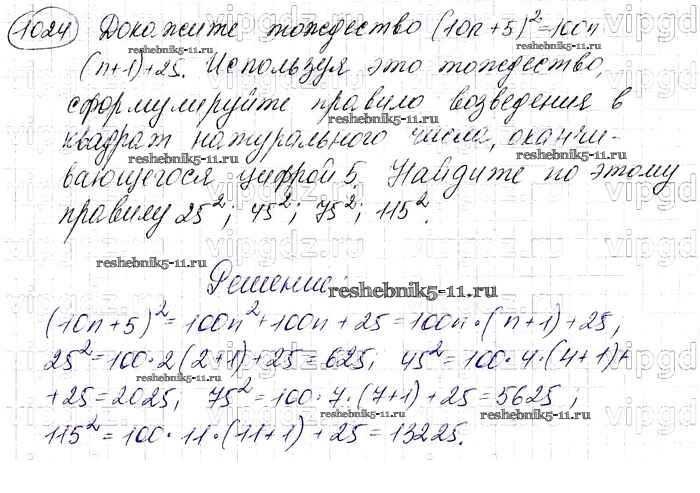 1024 Докажите тождество (10n+5)²=100n
(n+1)+25. Используя это тождество,
сформулируйте правило возведения в
квадрат натурального числа, оканчи-
вающегося цифрой 5. Найдите по этому
правилу 25²; 45²; 75²; 115².
reshebnik5-11.ru
Решение:
(10n+5)²=100n²+100n+25=100n·(n+1)+25,
25²=100·2(2+1)+25=625; 45²=100·4·(4+1)+
+25=2025; 75²=100·7·(7+1)+25=5625;
115²=100·11·(11+1)+25=13225.